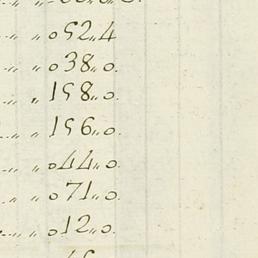 „ „ 052„4
„ „ 038„0.
„ „ 158„0.
„ „ 156„0.
„ „ 044„0.
„ „ 071„0.
„ „ 012„0.